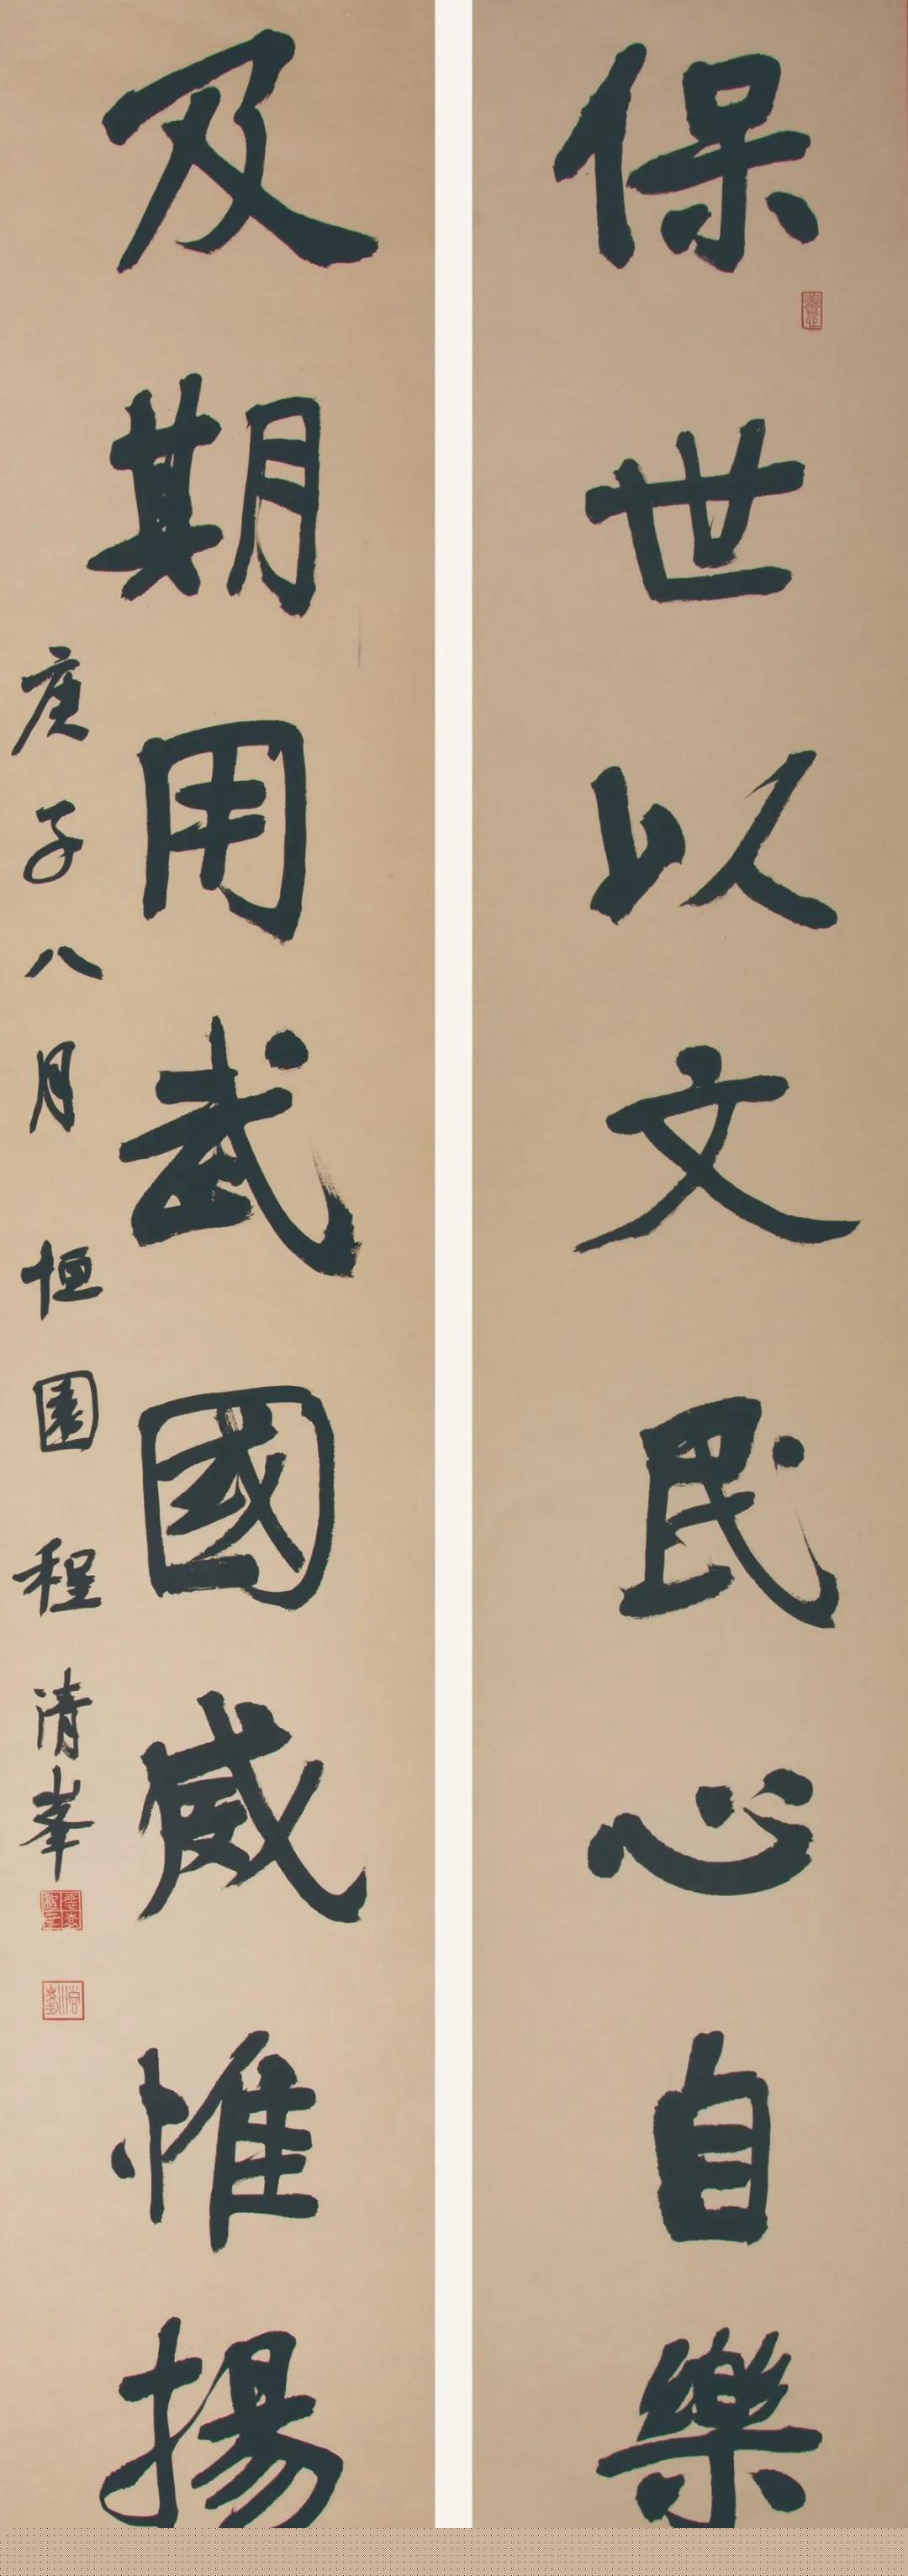 保世以文民心自樂
及期用武國威惟揚
庚子八月恒園程清峯